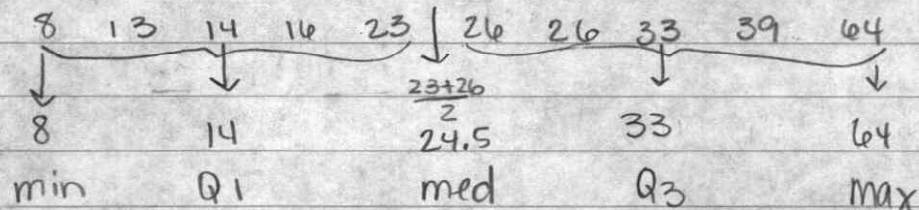 8 13 14 16 23 26 26 33 39 64
23+26
2
8 14 24.5 33 64
min Q1 med Q3 max